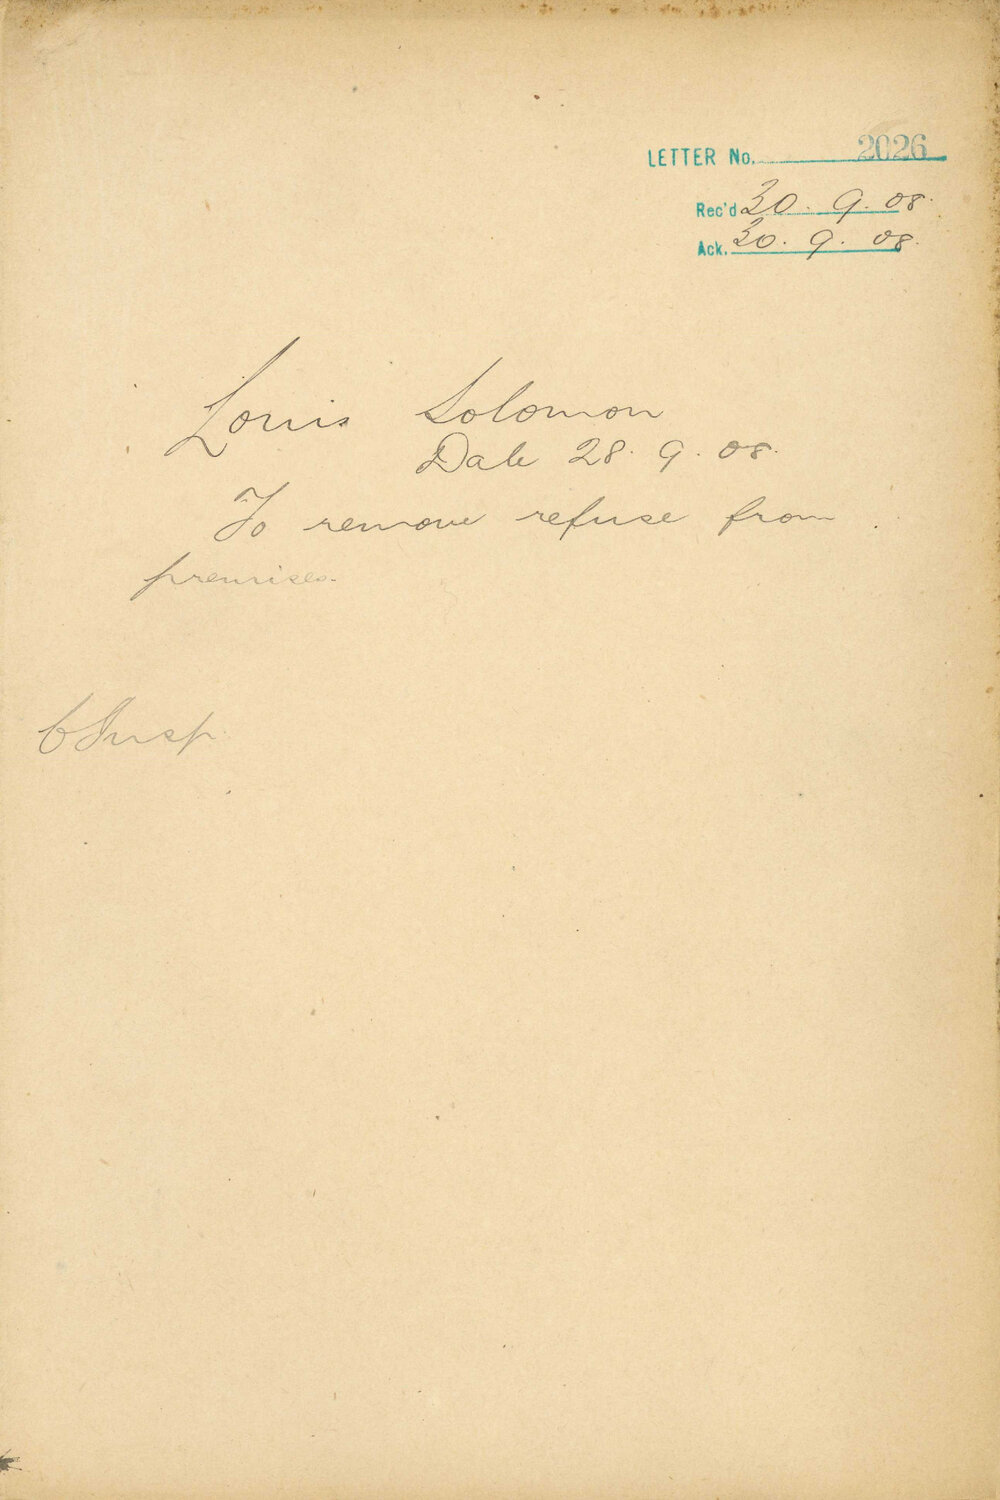 LETTER No. 2026
Rec'd 30. 9. 08.
Ack. 30. 9. 08.
Louis Solomon
Date 28. 9. 08.
To remove refuse from
premises.
C Insp